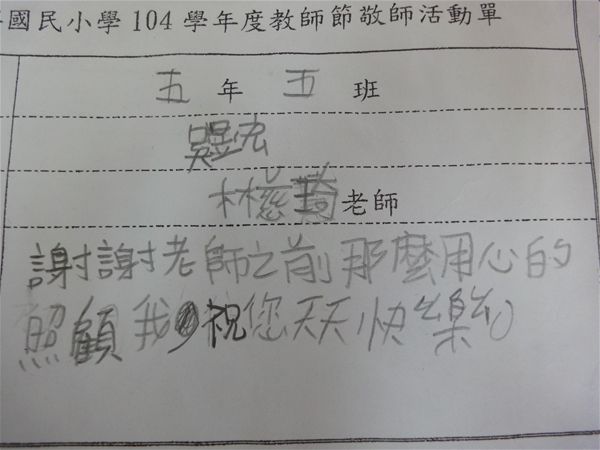 國民小學104學年度教師節敬師活動單
五年五班
吳昱宏
林慈琦老師
謝謝老師之前那麼用心的
照顧我,祝您天天快樂。